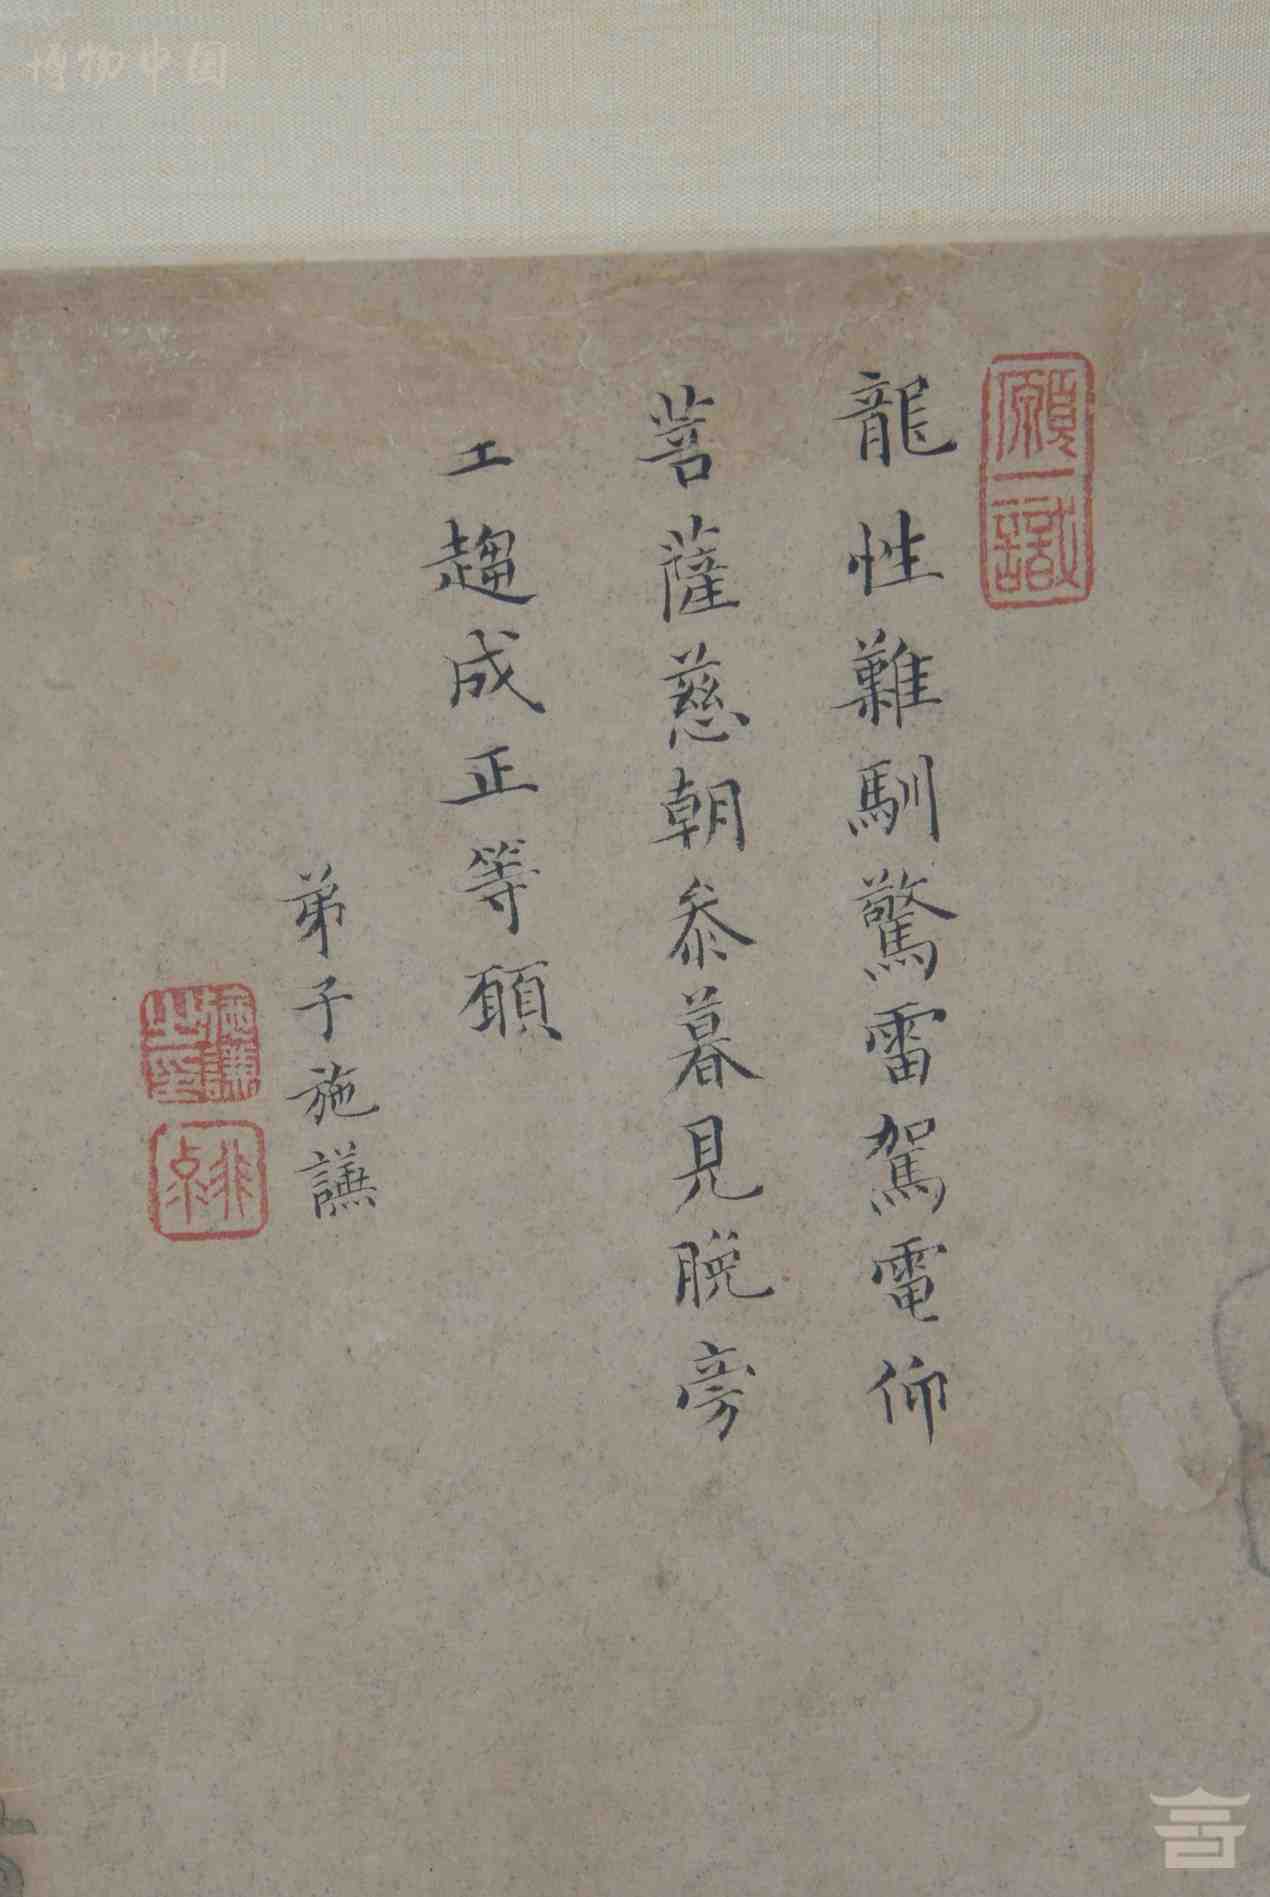 願一識
龍性難馴驚雷駕電仰
菩薩慈朝叅暮見脫旁
工趨成正等願
弟子施讌
之印
博物中国